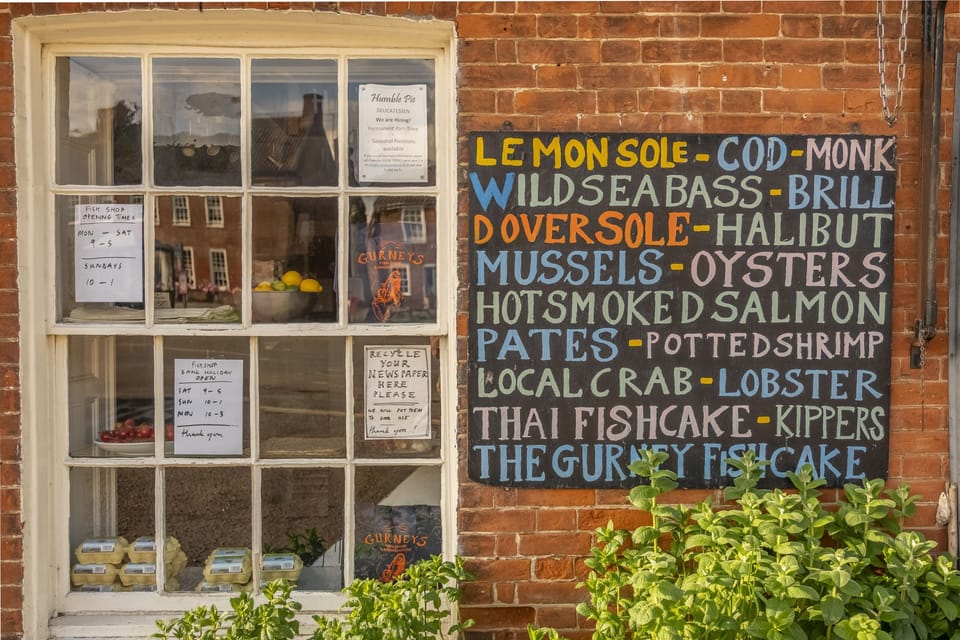 Humble Pie
DELICATESSEN
We are Hiring!
Permanent Part-Time
Seasonal Positions
available
FISH SHOP
OPENING TIMES
MON - SAT
9 - 5
SUNDAYS
10 - 1
GURNEYS
FISHSHOP
BANK HOLIDAY
OPEN
SAT 9 - 5
SUN 10 - 1
MON 10 - 3
thank you
RECYCLE
YOUR
NEWSPAPER
HERE
PLEASE
WE WILL PUT THEM
TO GOOD USE
thank you
GURNEYS
LEMON SOLE - COD - MONK
WILD SEA BASS - BRILL
DOVER SOLE - HALIBUT
MUSSELS - OYSTERS
HOT SMOKED SALMON
PATES - POTTED SHRIMP
LOCAL CRAB - LOBSTER
THAI FISHCAKE - KIPPERS
THE GURNEY FISHCAKE